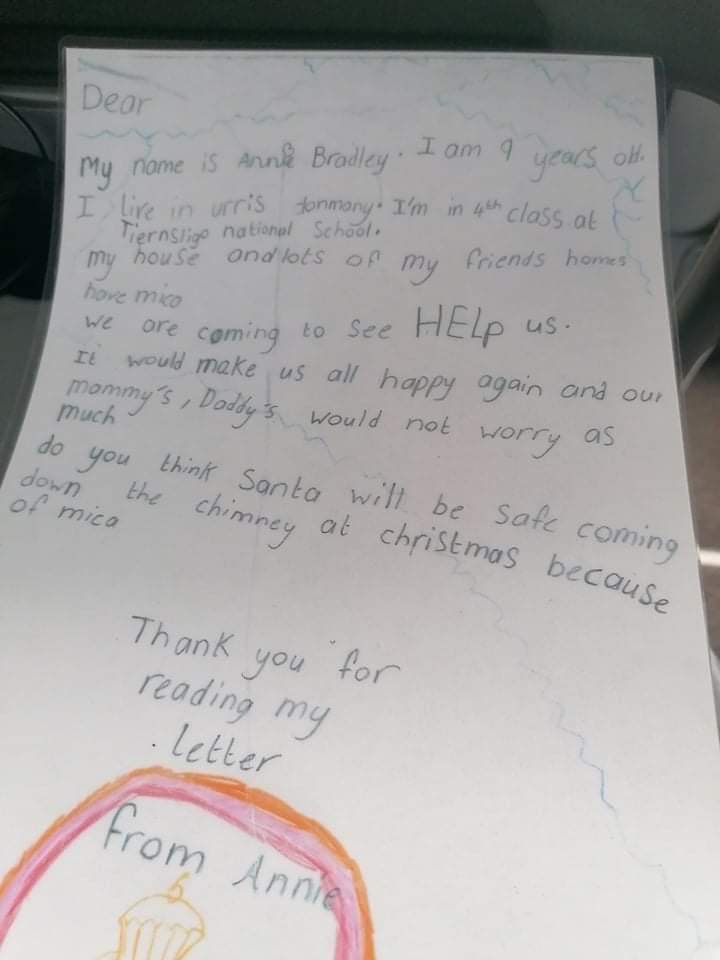 Dear
My name is Annie Bradley. I am 9 years old.
I live in urris Clonmany. I'm in 4th class at
Tiernsligo national School.
my house and lots of my friends homes
have mica
we are coming to see HELP us.
It would make us all happy again and our
mommy's, Daddy's would not worry as
much
do you think Santa will be safe coming
down the chimney at christmas because
of mica
Thank you for
reading my
letter
from Annie